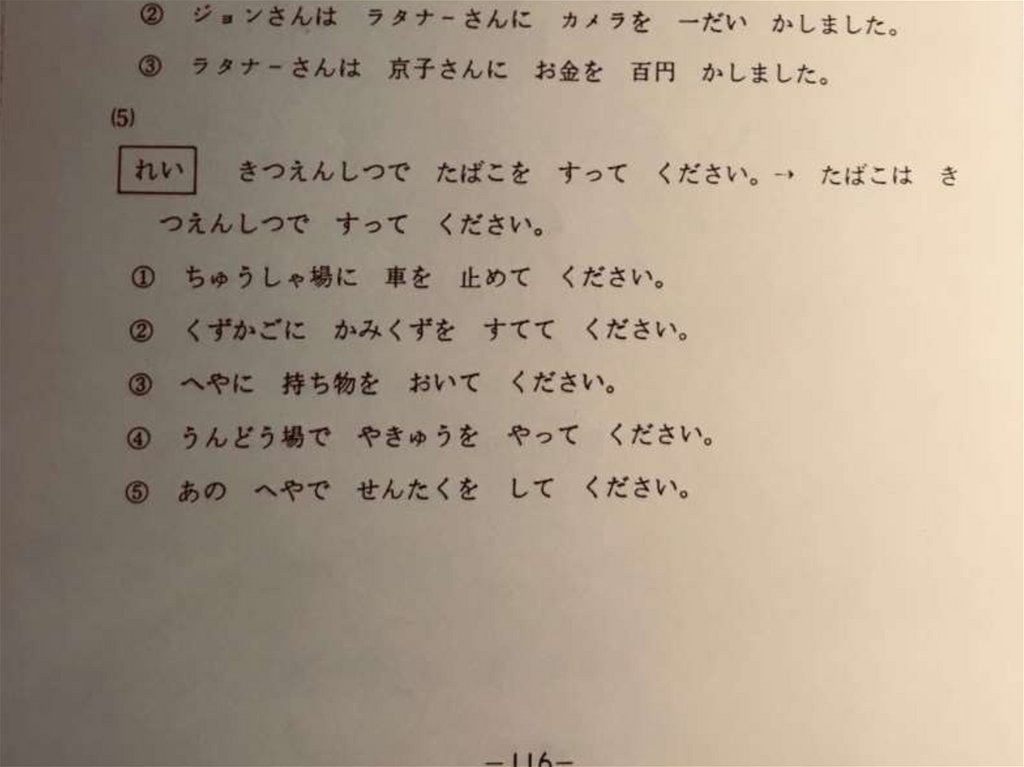 ② ジョンさんは ラタナーさんに カメラを 一だい かしました。
③ ラタナーさんは 京子さんに お金を 百円 かしました。
(5)
れい きつえんしつで たばこを すって ください。→ たばこは き
つえんしつで すって ください。
① ちゅうしゃ場に 車を 止めて ください。
② くずかごに かみくずを すてて ください。
③ へやに 持ち物を おいて ください。
④ うんどう場で やきゅうを やって ください。
⑤ あの へやで せんたくを して ください。
—116—